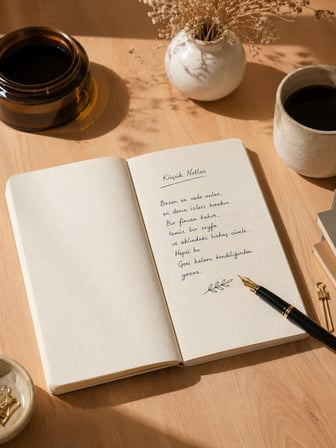 Küçük Notlar
Bazen en sade anlar,
en derin izleri bırakır.
Bir fincan kahve,
temiz bir sayfa
ve aklındaki birkaç cümle...
Hepsi bu.
Geri kalanı kendiliğinden
yazar.